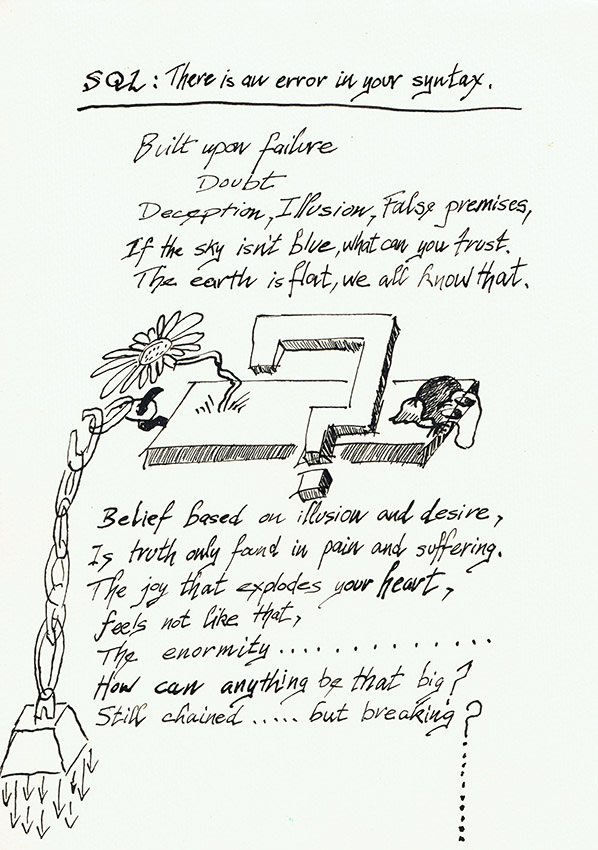 SQL: There is an error in your syntax.
Built upon failure
Doubt
Deception, Illusion, False premises,
If the sky isn't blue, what can you trust.
The earth is flat, we all know that.
?
Belief based on illusion and desire,
Is truth only found in pain and suffering.
The joy that explodes your heart,
feels not like that,
The enormity..............
How can anything be that big?
Still chained ..... but breaking?